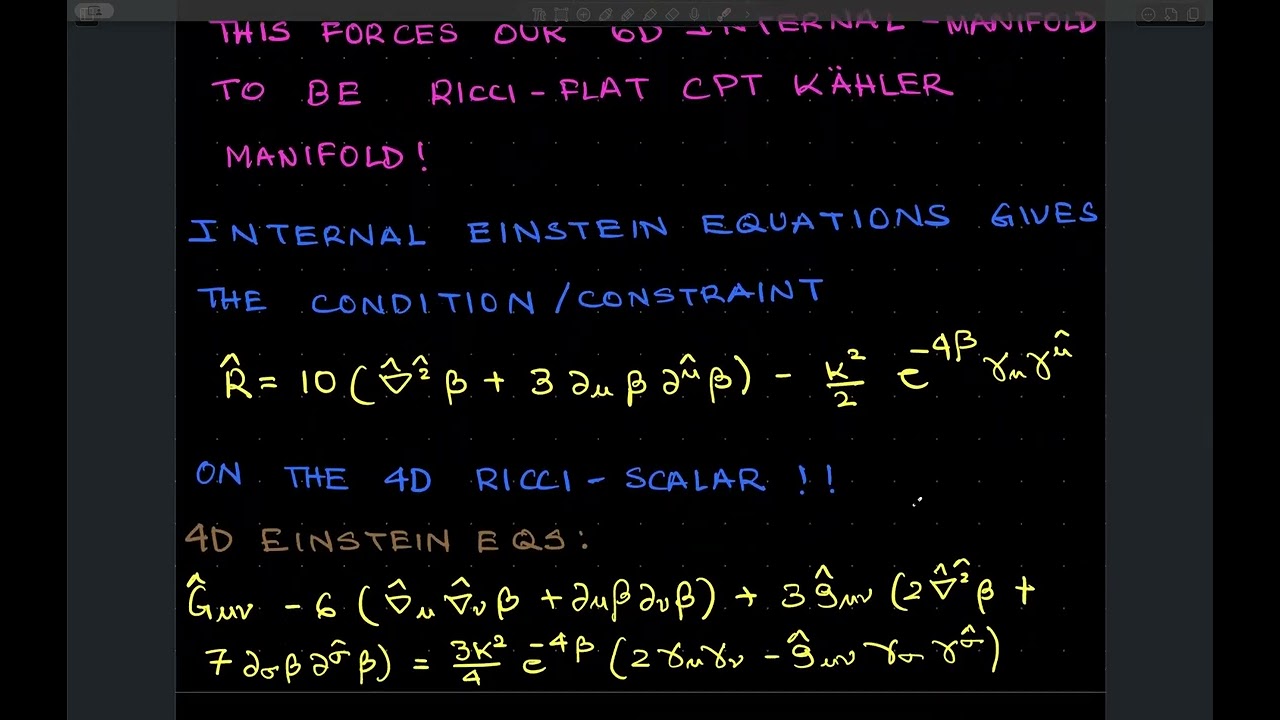 THIS FORCES OUR 6D INTERNAL-MANIFOLD
TO BE RICCI-FLAT CPT KÄHLER
MANIFOLD!
INTERNAL EINSTEIN EQUATIONS GIVES
THE CONDITION/CONSTRAINT
R̂ = 10 (∇̂^2̂ β + 3 ∂_μ β ∂^μ̂ β) - K²/2 e^{-4β} γ_μ γ^μ̂
ON THE 4D RICCI-SCALAR !!
4D EINSTEIN EQS:
Ĝ_μν - 6 (∇̂_μ ∇̂_ν β + ∂_μ β ∂_ν β) + 3 ĝ_μν (2 ∇̂^2̂ β +
7 ∂_σ β ∂^σ̂ β) = 3K²/4 e^{-4β} (2 γ_μ γ_ν - ĝ_μν γ_σ γ^σ̂)